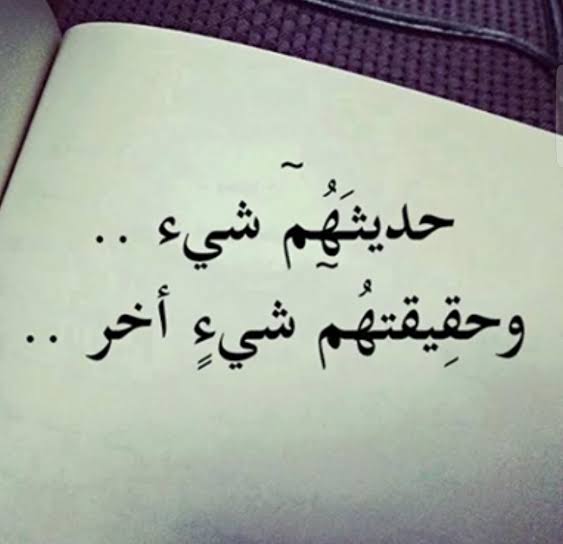 حديثَهُم شيء ..
وحقِيقتهُم شيءٍ أخر ..